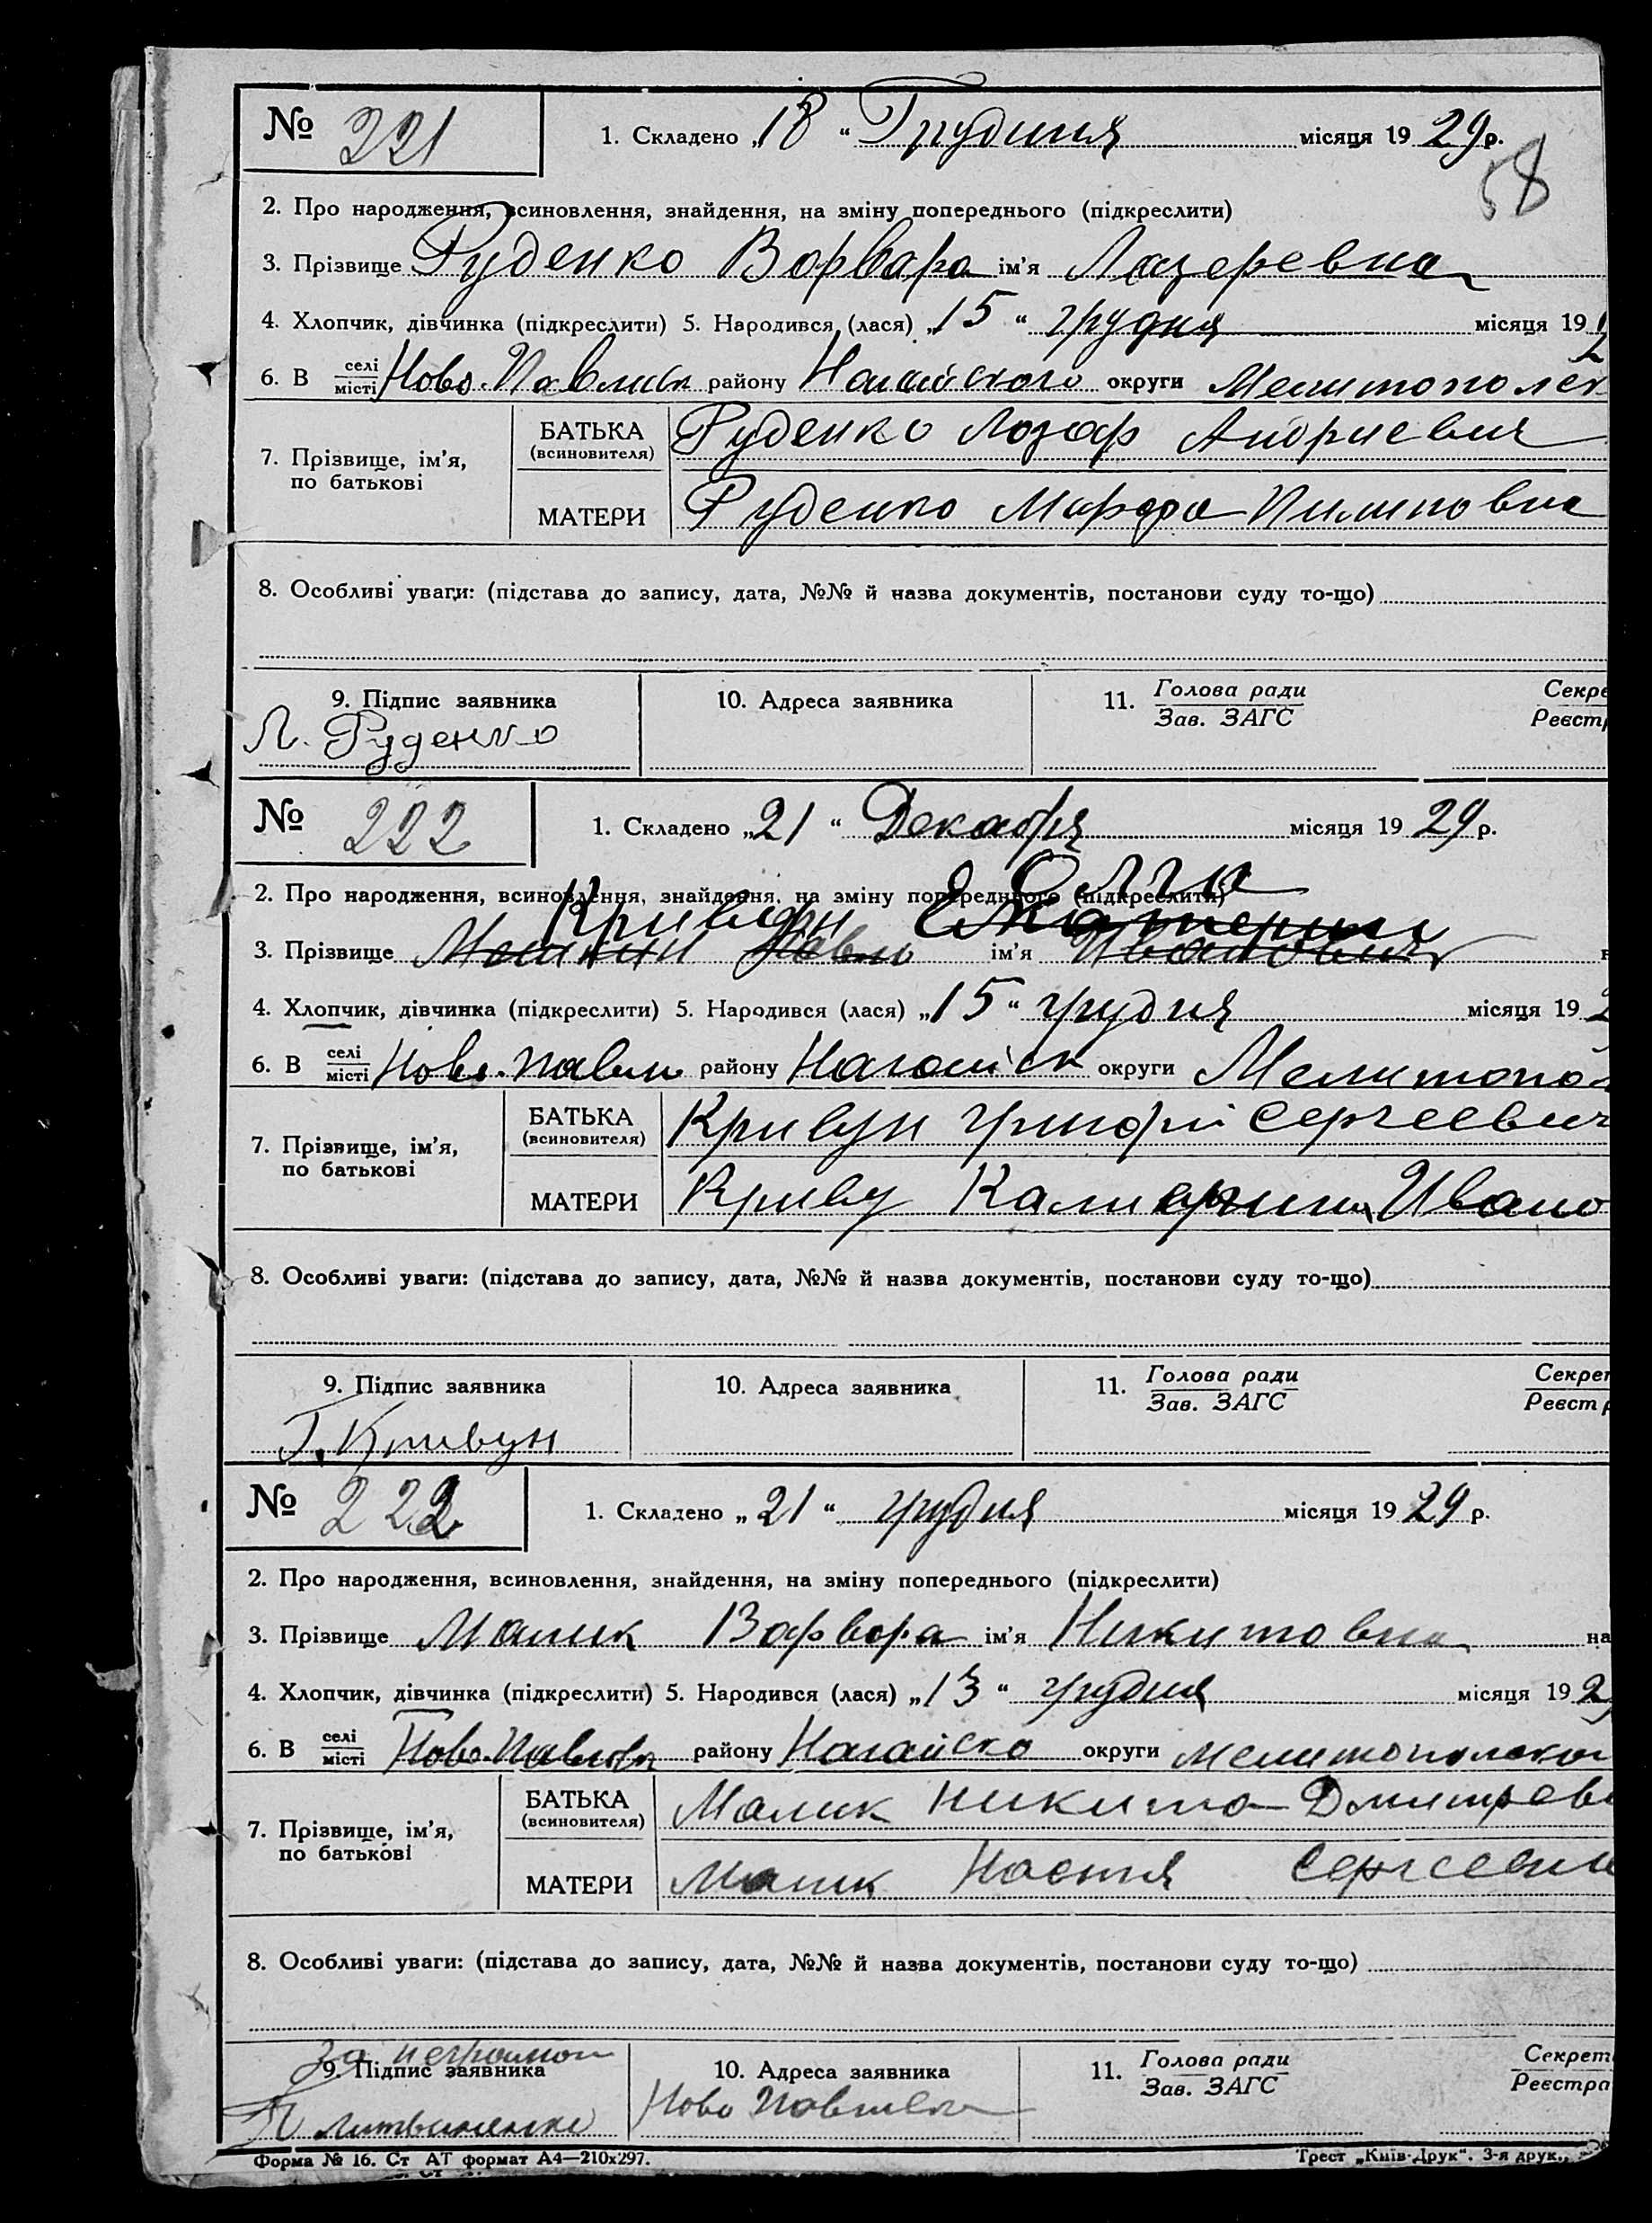 № 221 1. Складено „18“ Грудиня місяця 1929 р.
58
2. Про народження, всиновлення, знайдення, на зміну попереднього (підкреслити)
3. Прізвище Руденко Ворвара ім'я Лазеревна
4. Хлопчик, дівчинка (підкреслити) 5. Народився (лася) „15“ грудня місяця 19
6. В селі/місті Ново-Павливк району округи
7. Прізвище, ім'я, по батькові БАТЬКА (всиновителя) Руденко Лозар Андриевич
МАТЕРИ Руденко Марфа Пилиповна
8. Особливі уваги: (підстава до запису, дата, №№ й назва документів, постанови суду то-що)
9. Підпис заявника 10. Адреса заявника 11. Голова ради Секре
Зав. ЗАГС Реєст
Л. Руденко
№ 222 1. Складено „21“ Декабря місяця 1929 р.
Олга
2. Про народження, всиновлення, знайдення, на зміну попереднього (підкреслити)
Кривун
3. Прізвище Павло ім'я Иванович
4. Хлопчик, дівчинка (підкреслити) 5. Народився (лася) „15“ грудня місяця 192
6. В селі/місті Ново-Павли району округи Мелитопол
7. Прізвище, ім'я, по батькові БАТЬКА (всиновителя) Кривун Сергеевич
МАТЕРИ Криву Ивано
8. Особливі уваги: (підстава до запису, дата, №№ й назва документів, постанови суду то-що)
9. Підпис заявника 10. Адреса заявника 11. Голова ради Секрет
Зав. ЗАГС Реєстр
Г. Кривун
№ 222 1. Складено „21“ грудня місяця 1929 р.
2. Про народження, всиновлення, знайдення, на зміну попереднього (підкреслити)
3. Прізвище Малик Варвора ім'я Никитовна на
4. Хлопчик, дівчинка (підкреслити) 5. Народився (лася) „13“ грудня місяця 192
6. В селі/місті Ново-Павливк району Нагайско округи Мелитополског
7. Прізвище, ім'я, по батькові БАТЬКА (всиновителя) Малик Никита Дмитреви
МАТЕРИ Малик Настя Сергеевн
8. Особливі уваги: (підстава до запису, дата, №№ й назва документів, постанови суду то-що)
За неграмот
9. Підпис заявника 10. Адреса заявника 11. Голова ради Секрет
Зав. ЗАГС Реєстра
Литвиненко Ново Павливка
Форма № 16. Ст АТ формат А4—210х297. Трест „Київ-Друк“. 3-я друк.